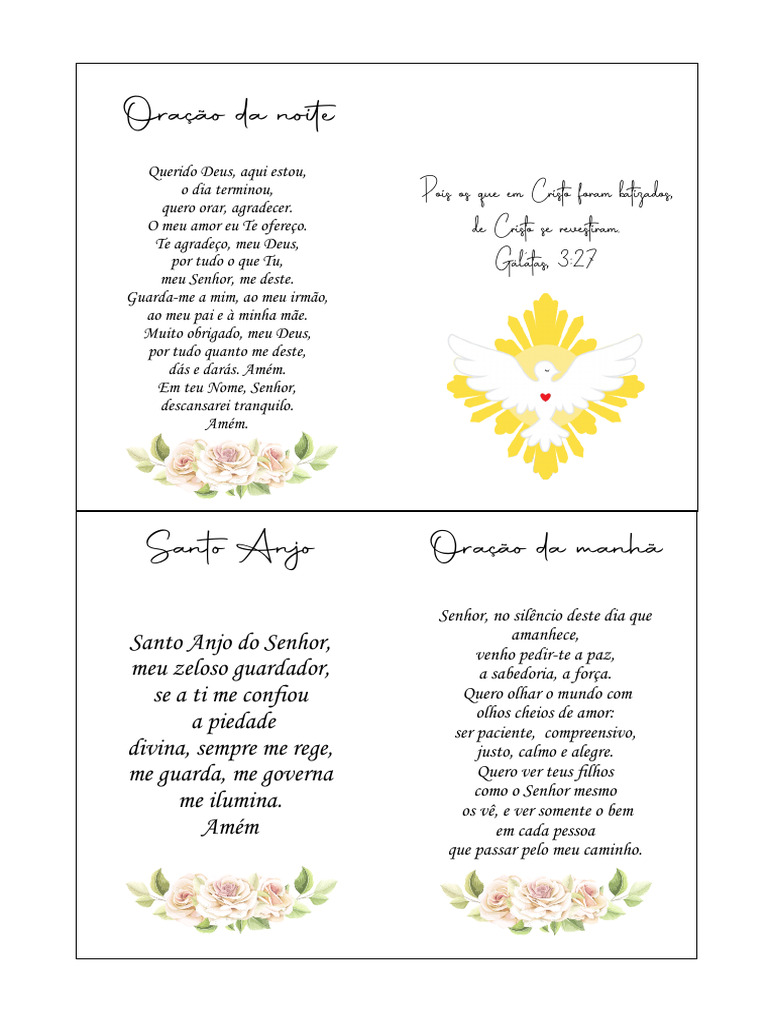 Oração da noite
Querido Deus, aqui estou,
o dia terminou,
quero orar, agradecer.
O meu amor eu Te ofereço.
Te agradeço, meu Deus,
por tudo o que Tu,
meu Senhor, me deste.
Guarda-me a mim, ao meu irmão,
ao meu pai e à minha mãe.
Muito obrigado, meu Deus,
por tudo quanto me deste,
dás e darás. Amém.
Em teu Nome, Senhor,
descansarei tranquilo.
Amém.
Pois os que em Cristo foram batizados,
de Cristo se revestiram.
Gálatas, 3:27
Santo Anjo
Santo Anjo do Senhor,
meu zeloso guardador,
se a ti me confiou
a piedade
divina, sempre me rege,
me guarda, me governa
me ilumina.
Amém
Oração da manhã
Senhor, no silêncio deste dia que
amanhece,
venho pedir-te a paz,
a sabedoria, a força.
Quero olhar o mundo com
olhos cheios de amor:
ser paciente, compreensivo,
justo, calmo e alegre.
Quero ver teus filhos
como o Senhor mesmo
os vê, e ver somente o bem
em cada pessoa
que passar pelo meu caminho.